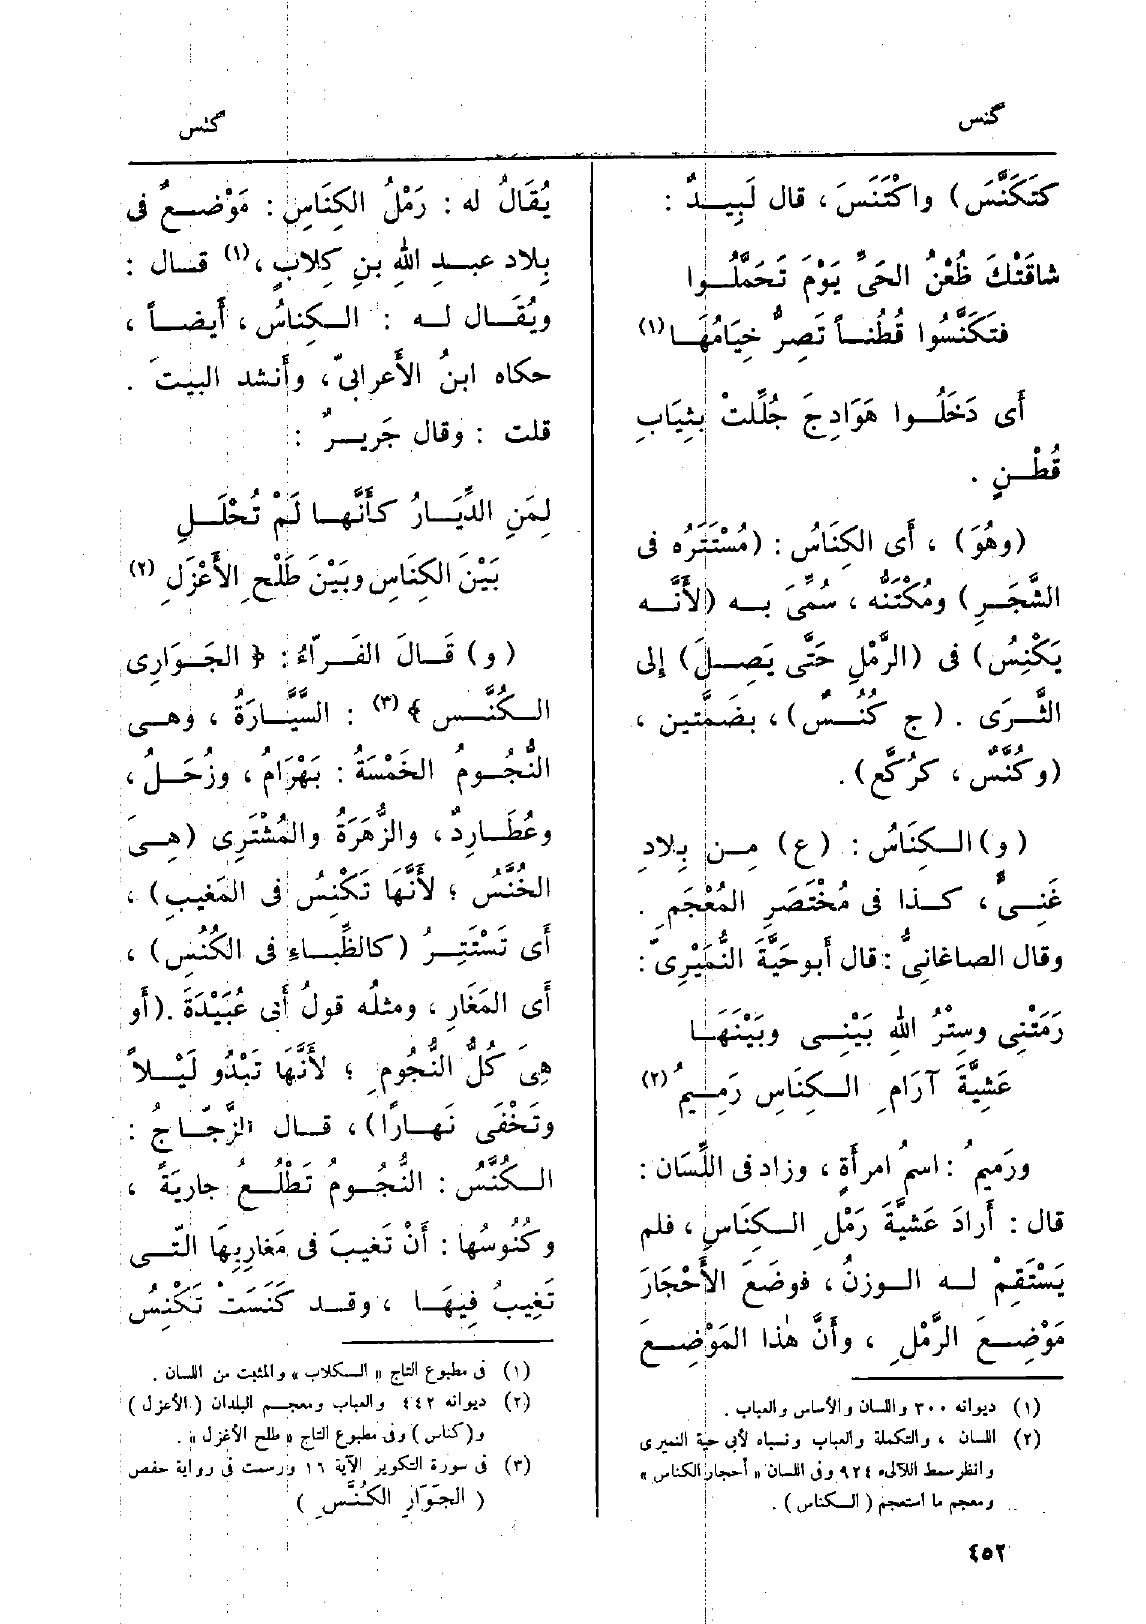 كنس
كنس
كتَكَنَّسَ) واكْتَنَسَ، قال لَبِيــدٌ :
شاقَتْكَ ظُعْنُ الحَىِّ يَوْمَ تَحَمَّلُــوا
فتَكَنَّسُوا قُطُنــاً تَصِرُّ خِيَامُهَــا (١)
أَى دَخَلُــوا هَوَادِجَ جُلِّلَتْ بثِيَابِ
قُطْــنٍ .
(وهُوَ) ، أَى الكِنَاسُ : (مُسْتَتَرُه فى
الشَّجَــرِ) ومُكْتَنُّه ، سُمِّىَ بــه (لأَنَّــه
يَكْنِسُ) فى (الرَّمْلِ حَتَّى يَصِــلَ) إلى
الثَّــرَى . (ج كُنُــسٌ)، بضَمَّتين ،
(وكُنَّسٌ ، كرُكَّعٍ) .
(و) الــكِنَاسُ : (ع) مِــن بِلادِ
غَنِــىٍّ ، كــذا فى مُخْتَصَرِ المُعْجَمِ .
وقال الصاغانىُّ : قال أَبوحَيَّةَ النُّمَيْرِىّ :
رَمَتْنِى وسِتْرُ اللهِ بَيْنِــى وبَيْنَهَــا
عَشِيَّةَ آرَامِ الــكِنَاسِ رَمِــيمُ (٢)
ورَميمُ : اسمُ امرأَةٍ ، وزاد فى اللِّسَان :
قال : أَرادَ عَشيَّةَ رَمْلِ الــكِنَاسِ ، فلم
يَسْتَقِمْ لــه الــوزنُ ، فوضَعَ الأَحْجَارَ
مَوْضِــعَ الرَّمْلِ ، وأَنَّ هٰذا المَوْضِــعَ
(١) ديوانه ٣٠٠ واللسان والأساس والعباب .
(٢) اللسان ، والتكملة والعباب ونسباه لأبى حية النميرى
وانظر سمط اللآلىء ٩٢٤ وفى اللسان « أحجار الكناس »
ومعجم ما استعجم ( الــكناس ) .
يُقَالُ له : رَمْلُ الكِنَاسِ : مَوْضــعٌ فى
بِلاد عبــدِ اللهِ بنِ كِلابٍ ،(١) قــال :
ويُقَــال لــه : الــكِناسُ ، أَيضــاً ،
حكاه ابنُ الأَعرابىّ ، وأَنشد البيتَ .
قلت : وقال جَريــرٌ :
لِمَنِ الدِّيَــارُ كــأَنَّهــا لَمْ تُحْلَــلِ
بَيْنَ الكِنَاسِ وبَيْنَ طَلْحِ الأَعْزَلِ (٢)
(و) قَــالَ الفَــرّاءُ : ﴿ الجَــوَارِى
الــكُنَّــسِ ﴾ (٣) : السَّيَّــارَةُ ، وهــى
النُّجُــومُ الخَمْسَةُ : بَهْرَامُ ، وزُحَــلُ ،
وعُطَــارِدٌ ، والزُّهَرَةُ والمُشْتَرِى (هِــىَ
الخُنَّسُ ؛ لأَنَّهَا تَكْنِسُ فى المَغيبِ) ،
أَى تَسْتَتِــرُ (كالظِّبــاءِ فى الكُنُسِ) ،
أَى المَغَارِ ، ومثلُه قولُ أَبى عُبَيْدَةَ .(أَو
هِىَ كُلُّ النُّجُومِ ؛ لأَنَّهَا تَبْدُو لَيْــلاً
وتَخْفَى نَهــارًا)، قــال الزَّجّــاجُ :
الــكُنَّسُ : النُّجُــومُ تَطْلُــعُ جاريَةً ،
وكُنُوسُها : أَنْ تَغيبَ فى مَغارِبِهَا الّتــى
تَغِيبُ فِيهَــا ، وقــد كَنَسَتْ تَكْنِسُ
(١) فى مطبوع التاج « الــكلاب » والمثبت من اللسان .
(٢) ديوانه ٤٤٢ والعباب ومعجــم البلدان ( الأعزل )
و(كناس) وفى مطبوع التاج « طلح الأغزل » .
(٣) فى سورة التكوير الآية ١٦ ورسمت فى رواية حفص
( الجَوَارِ الكُنَّسِ )
٤٥٢